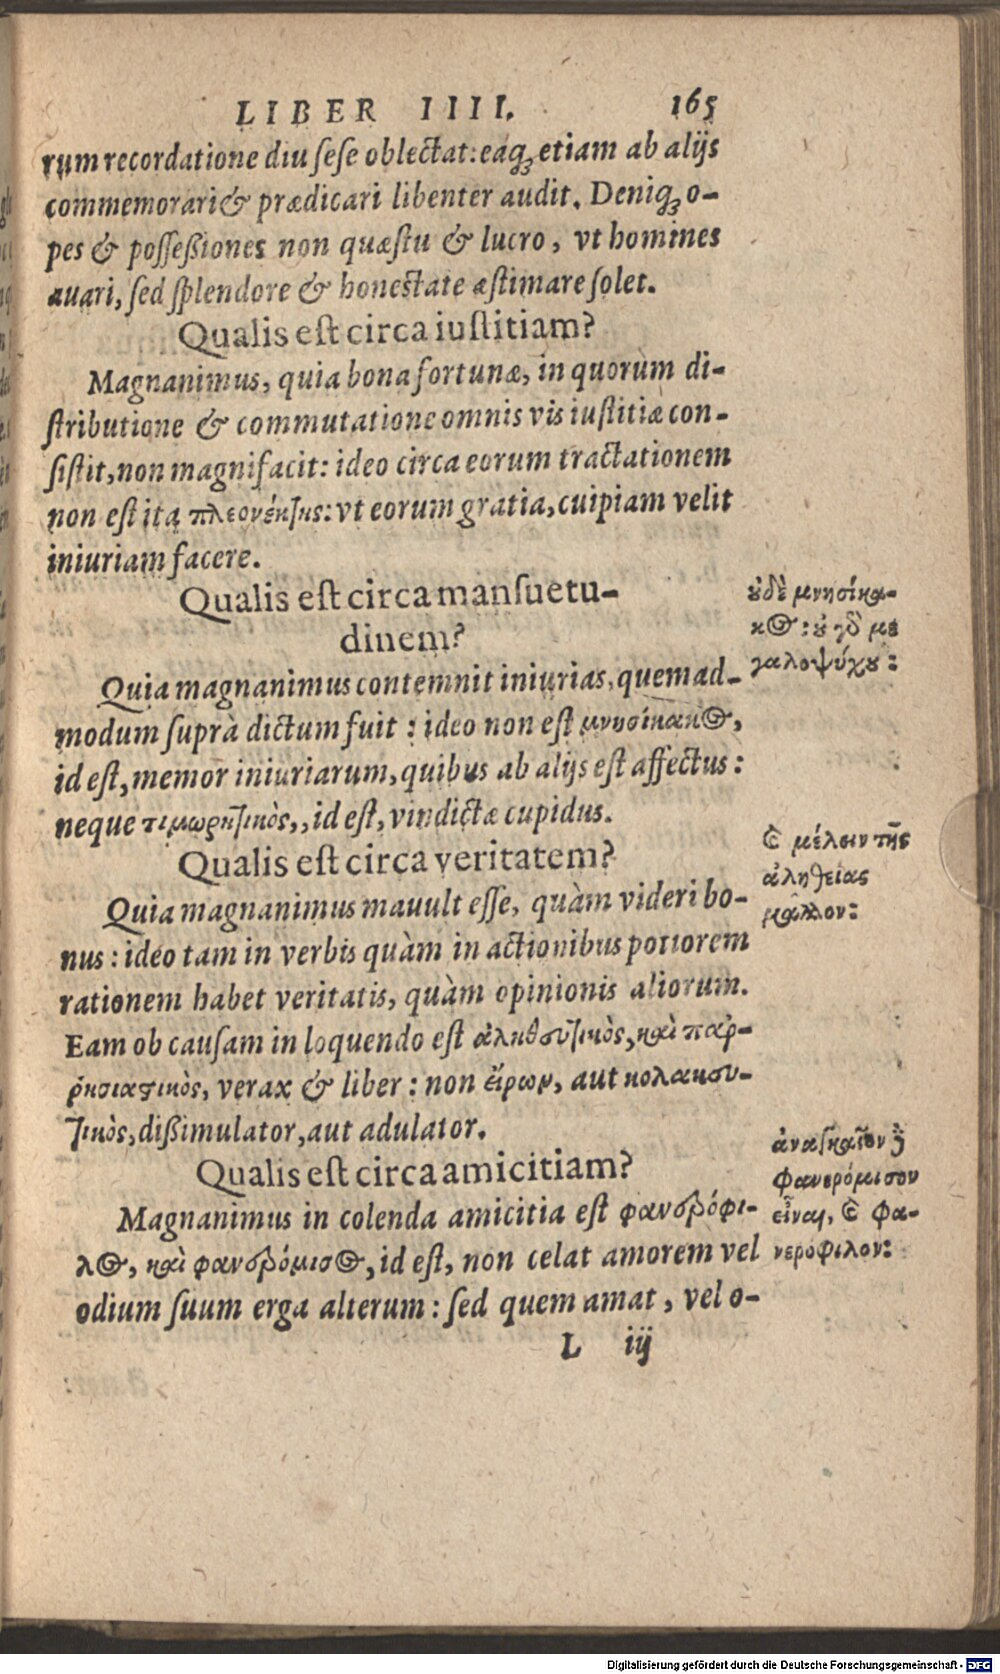 LIBER IIII. 165
rum recordatione diu sese oblectat: eaq́ꝫ etiam ab alijs
commemorari & prædicari libenter audit. Deniqꝫ o-
pes & posseßiones non quæstu & lucro, vt homines
auari, sed splendore & honestate æstimare solet.
Qualis est circa iustitiam?
Magnanimus, quia bona fortunæ, in quorùm di-
stributione & commutatione omnis vis iustitiæ con-
sistit, non magni facit: ideo circa eorum tractationem
non est ita πλεονέκτης: vt eorum gratia, cuipiam velit
iniuriam facere.
Qualis est circa mansuetu-
dinem?
Quia magnanimus contemnit iniurias, quemad-
modum suprà dictum fuit: ideo non est μνησίκακος,
id est, memor iniuriarum, quibus ab alijs est affectus:
neque τιμωρητικὸς, , id est, vindictæ cupidus.
Qualis est circa veritatem?
Quia magnanimus mauult esse, quàm videri bo-
nus: ideo tam in verbis quàm in actionibus potiorem
rationem habet veritatis, quàm opinionis aliorum.
Eam ob causam in loquendo est ἀληθευτικὸς, καὶ παῤ-
ῥησιαστικὸς, verax & liber: non εἴρων, aut κολακευ-
τικὸς, dißimulator, aut adulator.
Qualis est circa amicitiam?
Magnanimus in colenda amicitia est φανερόφι-
λος, καὶ φανερόμισος, id est, non celat amorem vel
odium suum erga alterum: sed quem amat, vel o-
L iij
οὐδὲ μνησίκα-
κος: οὐ γὸ με
γαλοψύχου:
καὶ μέλειν τῆς
ἀληθείας
μᾶλλον:
ἀναγκαῖον ȷ̃
φανερόμισον
εἶναι, καὶ φα-
νερόφιλον:
Digitalisierung gefördert durch die Deutsche Forschungsgemeinschaft - DFG